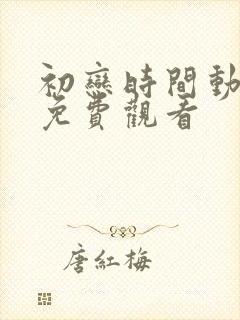 初戀時間動
免費觀看
唐紅梅